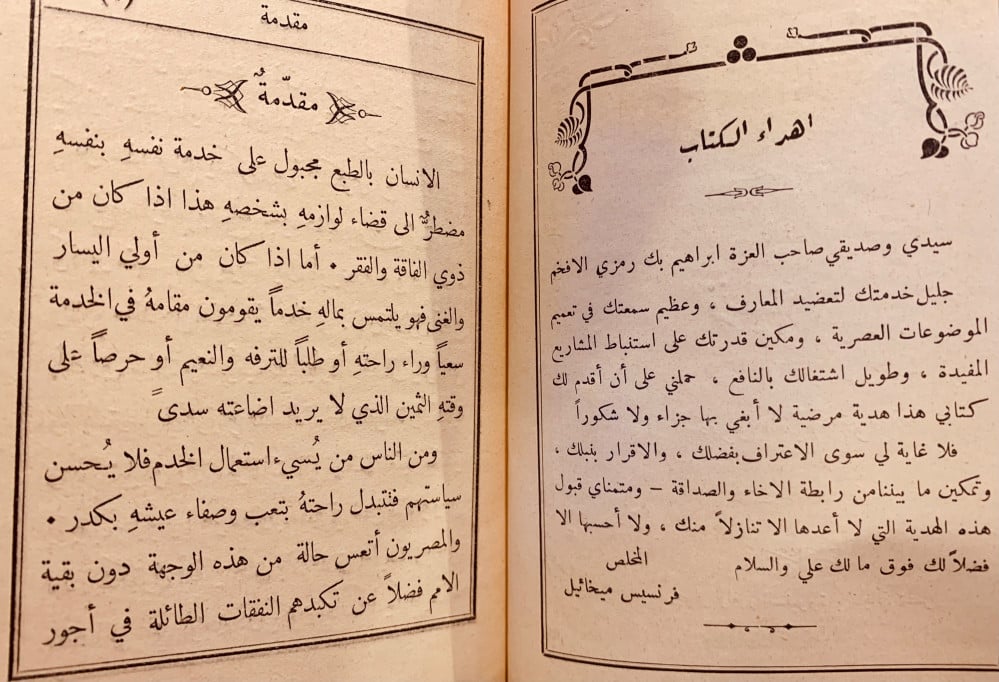 اهداء الكتاب
سيدي وصديقي صاحب العزة ابراهيم بك رمزي الافخم
جليل خدمتك لتعضيد المعارف ، وعظيم سمعتك في تعميم
الموضوعات العصرية ، ومكين قدرتك على استنباط المشاريع
المفيدة ، وطويل اشتغالك بالنافع ، حملني على أن أقدم لك
كتابي هذا هدية مرضية لا أبغي بها جزاء ولا شكوراً
فلا غاية لي سوى الاعتراف بفضلك ، والاقرار بنبلك ،
وتمكين ما بيننا من رابطة الاخاء والصداقة – ومتمناي قبول
هذه الهدية التي لا أعدها الا تنازلاً منك ، ولا أحسبها الا
فضلاً لك فوق ما لك علي والسلام المخلص
فرنسيس ميخائيل
مقدمة
مقدّمةٌ
الانسان بالطبع مجبول على خدمة نفسهِ بنفسهِ
مضطرٌّ الى قضاء لوازمهِ بشخصهِ هذا اذا كان من
ذوي الفاقة والفقر . أما اذا كان من أولي اليسار
والغنى فهو يلتمس بمالهِ خدماً يقومون مقامهُ في الخدمة
سعياً وراء راحتهِ أو طلباً للترفه والنعيم أو حرصاً على
وقتهِ الثمين الذي لا يريد اضاعته سدىً
ومن الناس من يُسيء استعمال الخدم فلا يُحسن
سياستهم فتتبدل راحتهُ بتعب وصفاء عيشهِ بكدر .
والمصريون أتعس حالة من هذه الوجهة دون بقية
الامم فضلاً عن تكبدهم النفقات الطائلة في أجور